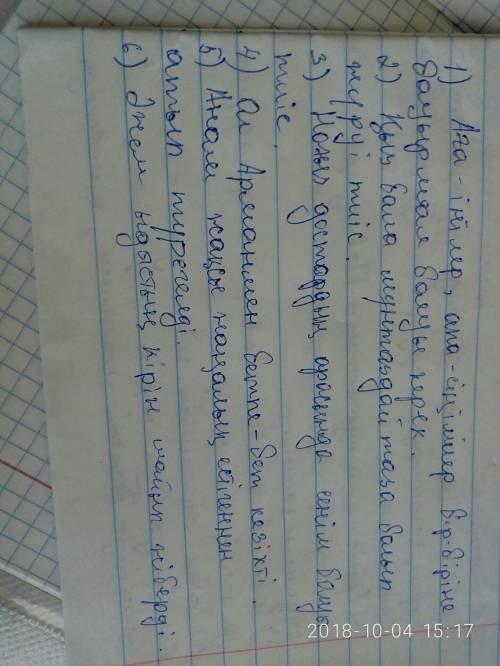 1) Аға-інілер, апа-сіңлілер бір-біріне
бауырмал болуы керек.
2) Қыз бала мұнтаздай таза болып
жүруі тиіс.
3) Нағыз достардың арасында сенім болуы
тиіс.
4) Ол Арманмен бетпе-бет кезікті.
5) Анам жақсы жаңалық естігеннен
атып түрегелді.
6) Әкем ыдыстың кірін шайып жіберді.
2018-10-04 15:17